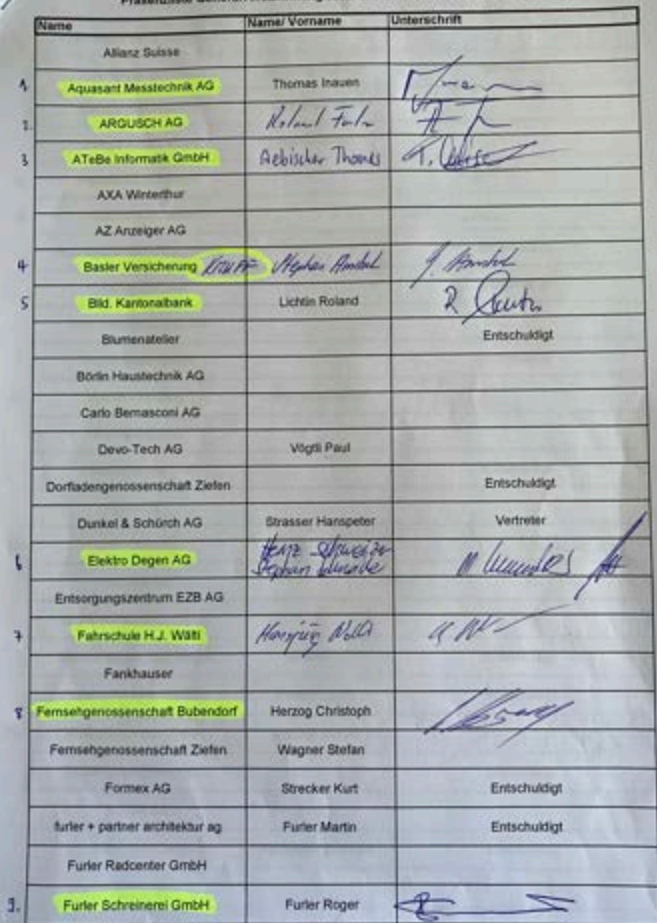 Name Name/ Vorname Unterschrift
Allianz Suisse
1. Aquasant Messtechnik AG Thomas Inauen
2. ARGUSCH AG Roland
3 ATeBe Informatik GmbH Aebischer Thomas
AXA Winterthur
AZ Anzeiger AG
4 Basler Versicherung Stephan
5 Bld. Kantonalbank Lichtin Roland
Blumenatelier Entschuldigt
Börlin Haustechnik AG
Carlo Bernasconi AG
Devo-Tech AG Vögtli Paul
Dorfladengenossenschaft Ziefen Entschuldigt
Dunkel & Schürch AG Strasser Hanspeter Vertreter
6 Elektro Degen AG Schweizer
Stephan
Entsorgungszentrum EZB AG
7 Fahrschule H.J. Wälti
Fankhauser
8 Fernsehgenossenschaft Bubendorf Herzog Christoph
Fernsehgenossenschaft Ziefen Wagner Stefan
Formex AG Strecker Kurt Entschuldigt
furler + partner architektur ag Furler Martin Entschuldigt
Furler Radcenter GmbH
9. Furler Schreinerei GmbH Furler Roger